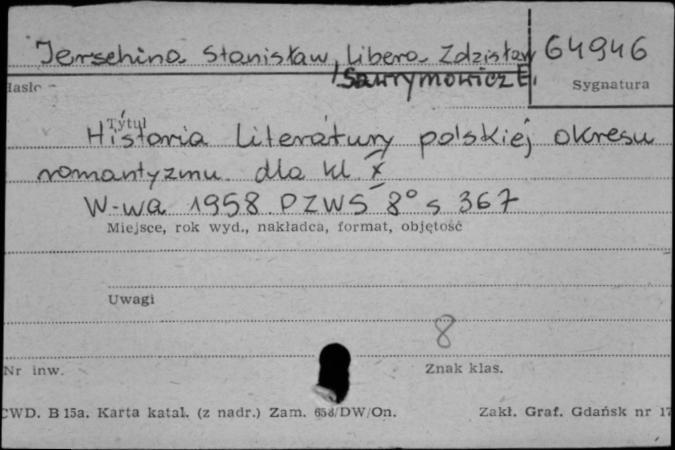 Jerschina Stanisław, Libera Zdzisław 64946
Sawrymowicz E.
Hasło Sygnatura
Tytuł
Historia literatury polskiej okresu
romantyzmu dla kl X
W-wa 1958 PZWS 8° s 367
Miejsce, rok wyd., nakładca, format, objętość
Uwagi
8
Nr inw. Znak klas.
CWD. B 15a. Karta katal. (z nadr.) Zam. 658/DW/On. Zakł. Graf. Gdańsk nr 17